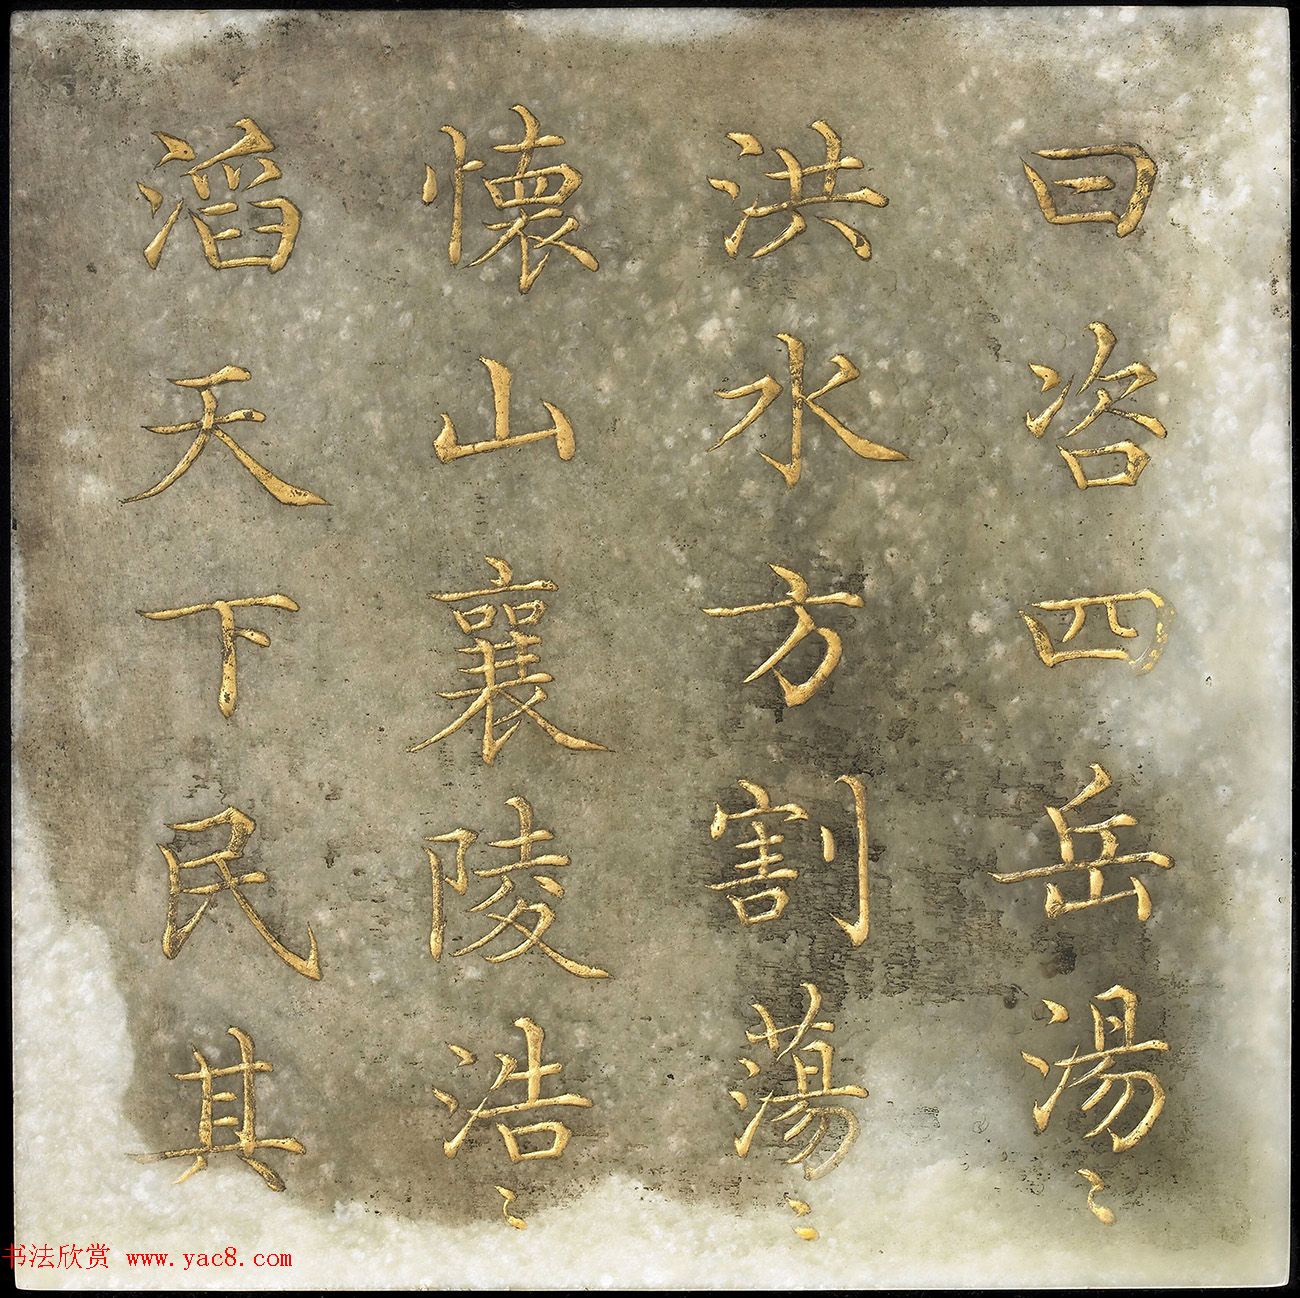 曰咨四岳湯〻
洪水方割蕩〻
懷山襄陵浩〻
滔天下民其
书法欣赏 www.yac8.com